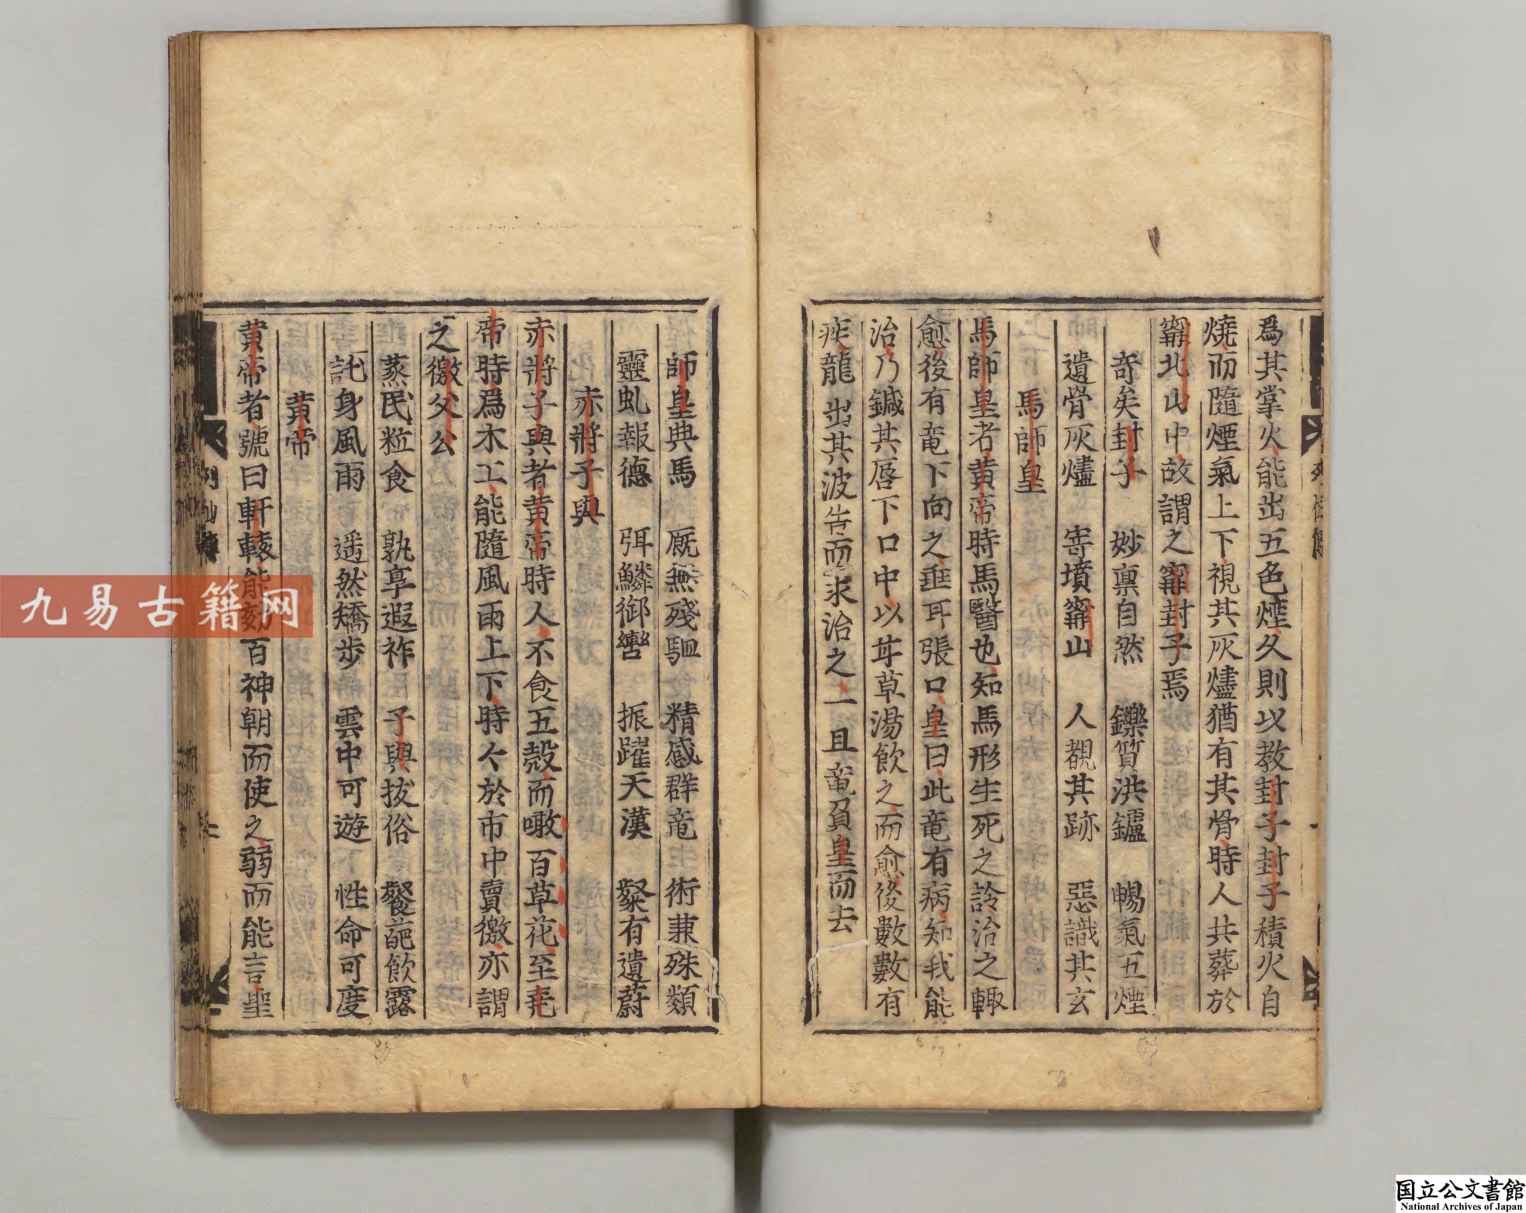 爲其掌火能出五色煙久則以教封子封子積火自
燒而隨煙氣上下視其灰燼猶有其骨時人共葬於
甯北山中故謂之甯封子焉
奇矣封子 妙禀自然 鑠質洪鑪 暢氣五煙
遺骨灰燼 寄墳甯山 人覩其跡 惡識其玄
馬師皇
馬師皇者黄帝時馬醫也知馬形生死之診治之輒
愈後有竜下向之垂耳張口皇曰此竜有病知我能
治乃鍼其唇下口中以甘草湯飲之而愈後數數有
疾龍出其波告而求治之一旦竜負皇而去
師皇典馬 厩無殘駟 精感群竜 術兼殊類
靈虬報德 弭鱗御轡 振躍天漢 粲有遺蔚
赤將子輿
赤將子輿者黄帝時人不食五穀而噉百草花至尭
帝時爲木工能隨風雨上下時々於市中賣繳亦謂
之繳父公
蒸民粒食 孰享遐祚 子輿拔俗 餐葩飲露
託身風雨 遥然矯步 雲中可遊 性命可度
黄帝
黄帝者號曰軒轅能劾百神朝而使之弱而能言聖
列仙傳
九易古籍网
国立公文書館
National Archives of Japan